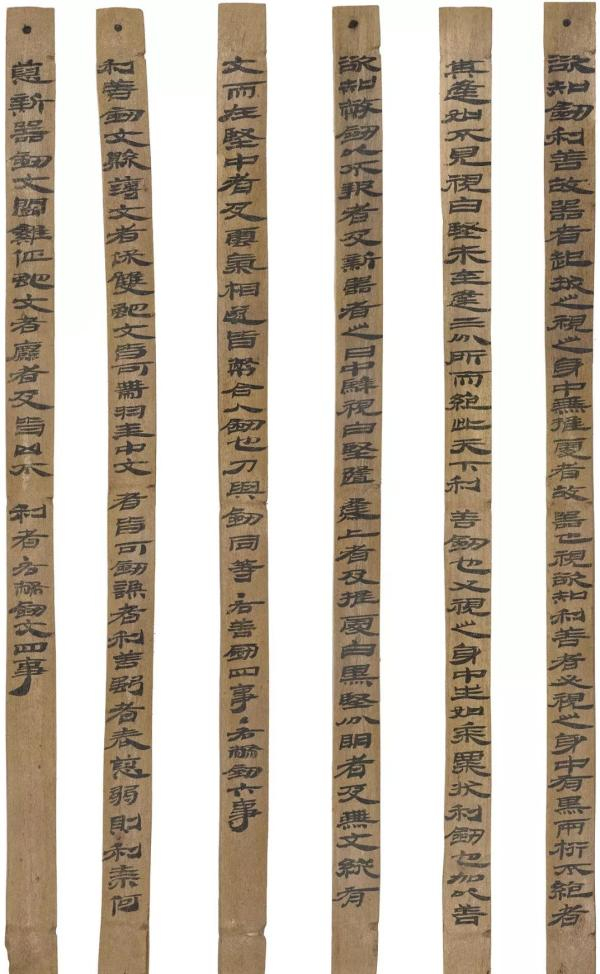 欲知劍利善故器者起拔之視之身中無推處者故器也視欲知利善者必視之身中有黑兩桁不絕者
其逢如不見視白堅未至逢三分所而絕此天下利善劍也又視之身中生如黍粟狀利劍也加以善
欲知幣劍以不報者及新器者之日中騂視白堅隨逢上者及推處白黑堅分明者及無文縱有
文而在堅中者及雲氣相遂皆幣合人劍也刀與劍同等·右善劍四事·右幣劍六事
利善劍文縣薄文者保雙蛇文皆可帶羽圭中文者皆可劍謙者利善強者表惡弱則利奈何
惡新器劍文鬥雞佂蛇文者粗者及皆凶不利者·右幣劍文四事